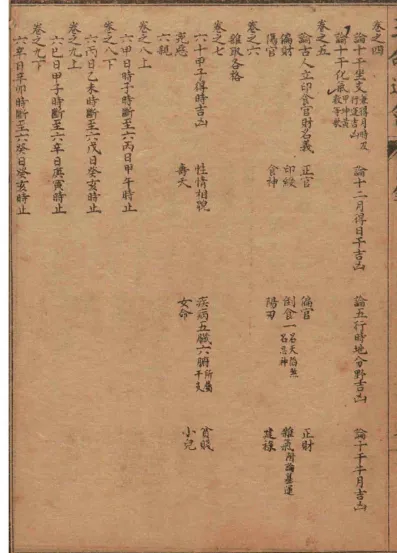 卷之四
論十干坐支兼得月時及行運吉凶 論十二月得日干吉凶 論五行時地分野吉凶 論十干十月吉凶
論十干化氣
卷之五
論古人立印食官財名義 正官 偏官 正財
偏財 印綬 倒食一名天倍煞一名吞神 雜氣附論墓運
陽官 食神 陽刃 建祿
卷之六
雜取各格
卷之七
六十甲子得時吉凶 性情相貌 疾病五臟六腑所屬干支 貧賤
兇惡 壽夭 女命 小兒
六親
卷之八上
六甲日時子時斷至六丙日甲午時
卷之八下
六丙日乙未時斷至六戊日癸亥時止
卷之九上
六己日甲子時斷至六辛日庚寅時止
卷之九下
六辛日辛卯時斷至六癸日癸亥時止